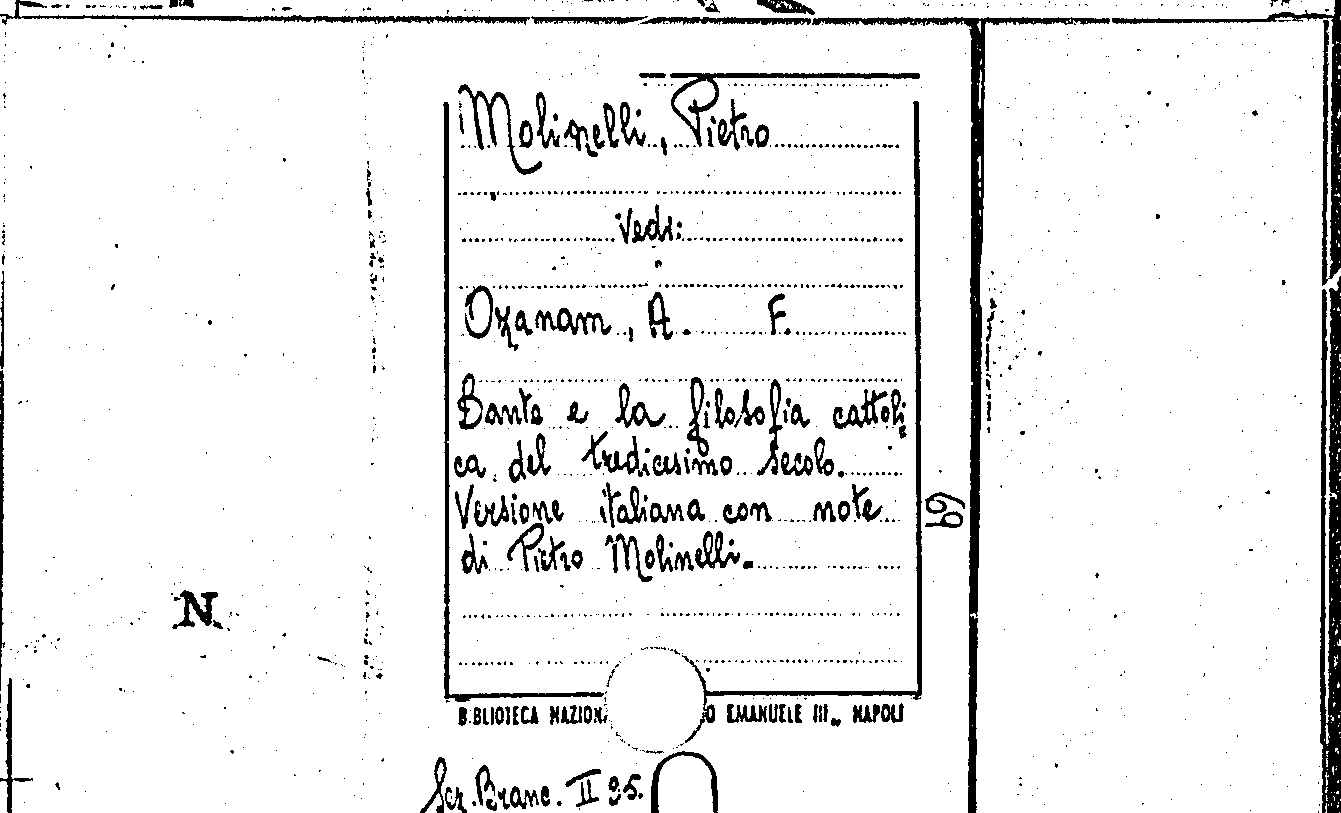 Molinelli, Pietro
Vedi:
Ozanam, A. F.
Dante e la filosofia cattoli
ca del tredicesimo secolo.
Versione italiana con note
di Pietro Molinelli.
69
N
B.BLIOTECA NAZION O EMANUELE III„ NAPOLI
Scr. Branc. II 95.